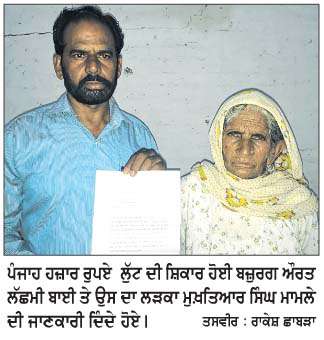 ਪੰਜਾਹ ਹਜ਼ਾਰ ਰੁਪਏ ਲੁੱਟ ਦੀ ਸ਼ਿਕਾਰ ਹੋਈ ਬਜ਼ੁਰਗ ਔਰਤ
ਲੱਛਮੀ ਬਾਈ ਤੇ ਉਸ ਦਾ ਲੜਕਾ ਮੁਖ਼ਤਿਆਰ ਸਿੰਘ ਮਾਮਲੇ
ਦੀ ਜਾਣਕਾਰੀ ਦਿੰਦੇ ਹੋਏ। ਤਸਵੀਰ : ਰਾਕੇਸ਼ ਛਾਬੜਾ